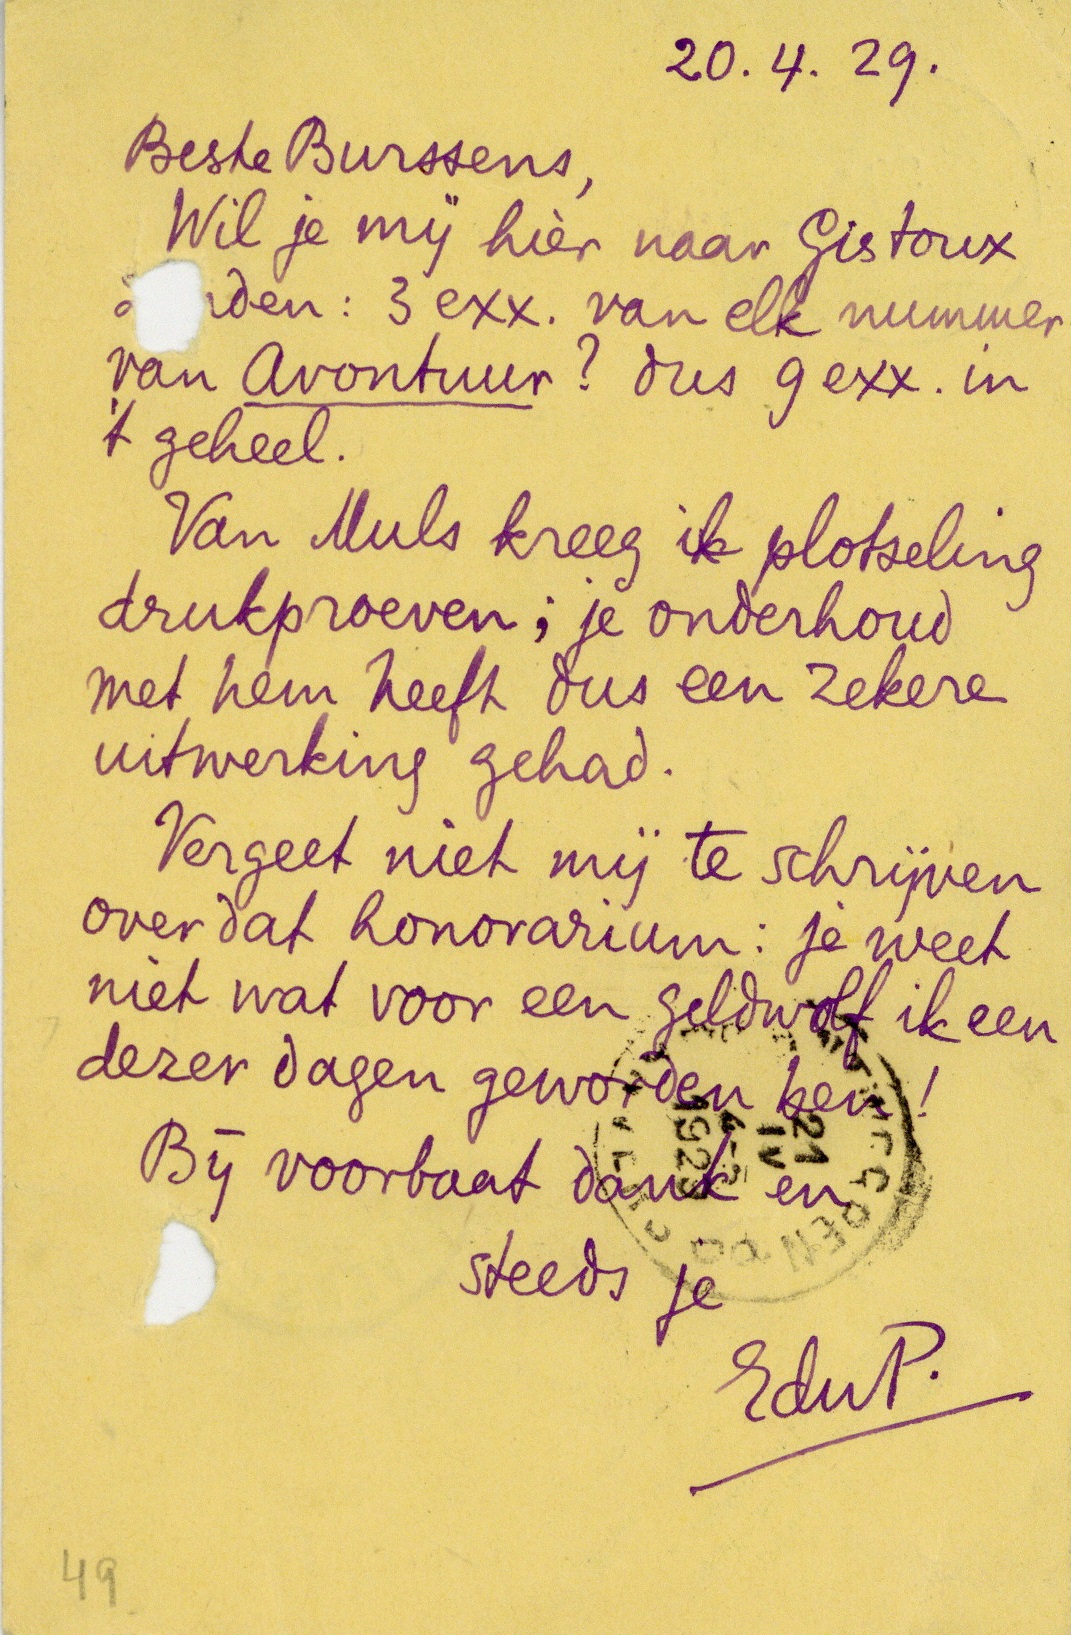 20. 4. 29.
Beste Burssens,
Wil je mij hièr naar Gistoux
rden: 3 exx. van elk nummer
van Avontuur? dus 9 exx. in
't geheel.
Van Muls kreeg ik plotseling
drukproeven; je onderhoud
met hem heeft dus een zekere
uitwerking gehad.
Vergeet niet mij te schrijven
over dat honorarium: je weet
niet wat voor een geldwolf ik een
dezer dagen geworden ben!
Bij voorbaat dank en
steeds je
EduP.
21
IV
49